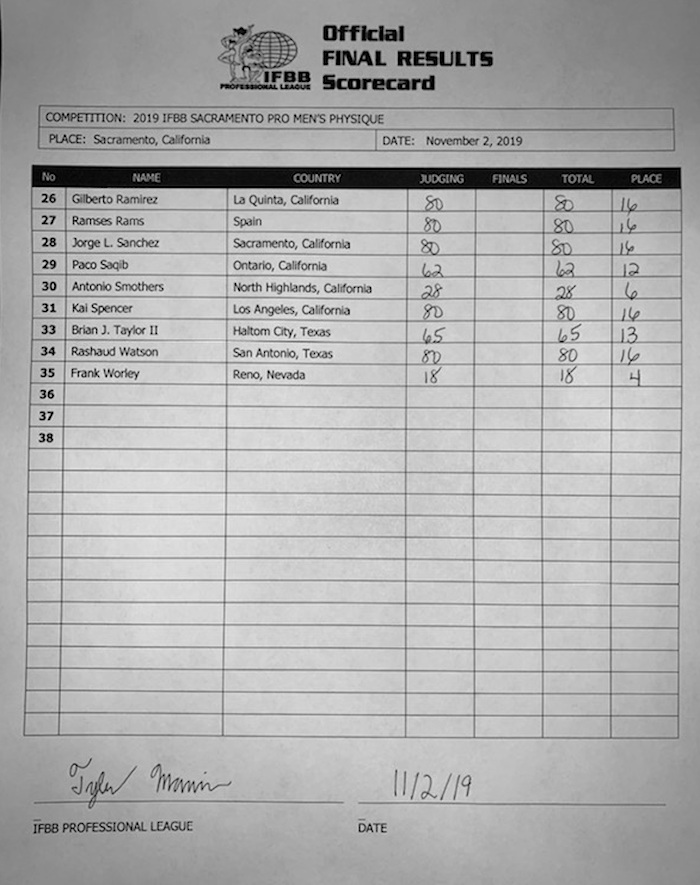 Official
FINAL RESULTS
Scorecard
IFBB
PROFESSIONAL LEAGUE
COMPETITION: 2019 IFBB SACRAMENTO PRO MEN'S PHYSIQUE
PLACE: Sacramento, California DATE: November 2, 2019
No NAME COUNTRY JUDGING FINALS TOTAL PLACE
26 Gilberto Ramirez La Quinta, California 80 80 16
27 Ramses Rams Spain 80 80 16
28 Jorge L. Sanchez Sacramento, California 80 80 16
29 Paco Saqib Ontario, California 62 62 12
30 Antonio Smothers North Highlands, California 28 28 6
31 Kai Spencer Los Angeles, California 80 80 16
33 Brian J. Taylor II Haltom City, Texas 65 65 13
34 Rashaud Watson San Antonio, Texas 80 80 16
35 Frank Worley Reno, Nevada 18 18 4
36
37
38
Tyler 11/2/19
IFBB PROFESSIONAL LEAGUE DATE